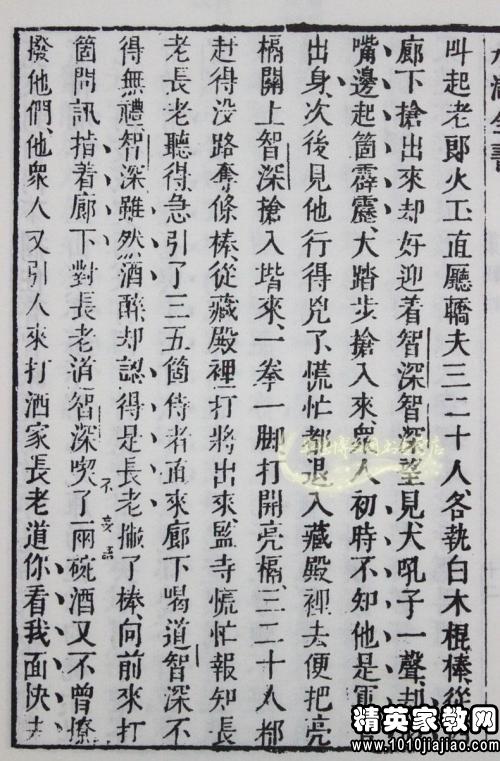 叫起老郎火工直廳轎夫三二十人各執白木棍棒從
廊下搶出來却好迎着智深智深望見大吼了一聲却
嘴邊起箇霹靂大踏步搶入來衆人初時不知他是軍
出身次後見他行得兇了慌忙都退入藏殿裡去便把亮
槅關上智深搶入堦來一拳一脚打開亮槅三二十人都
赶得没路奪條棒從藏殿裡打將出來監寺慌忙報知長
老長老聽得急引了三五箇侍者直來廊下喝道智深不
得無禮智深雖然酒醉却認得是長老撇了棒向前來打
不妄語
箇問訊指着廊下對長老道智深喫了兩碗酒又不曾撩
撥他們他衆人又引人來打洒家長老道你看我面快去
精英家教网
www.1010jiajiao.com